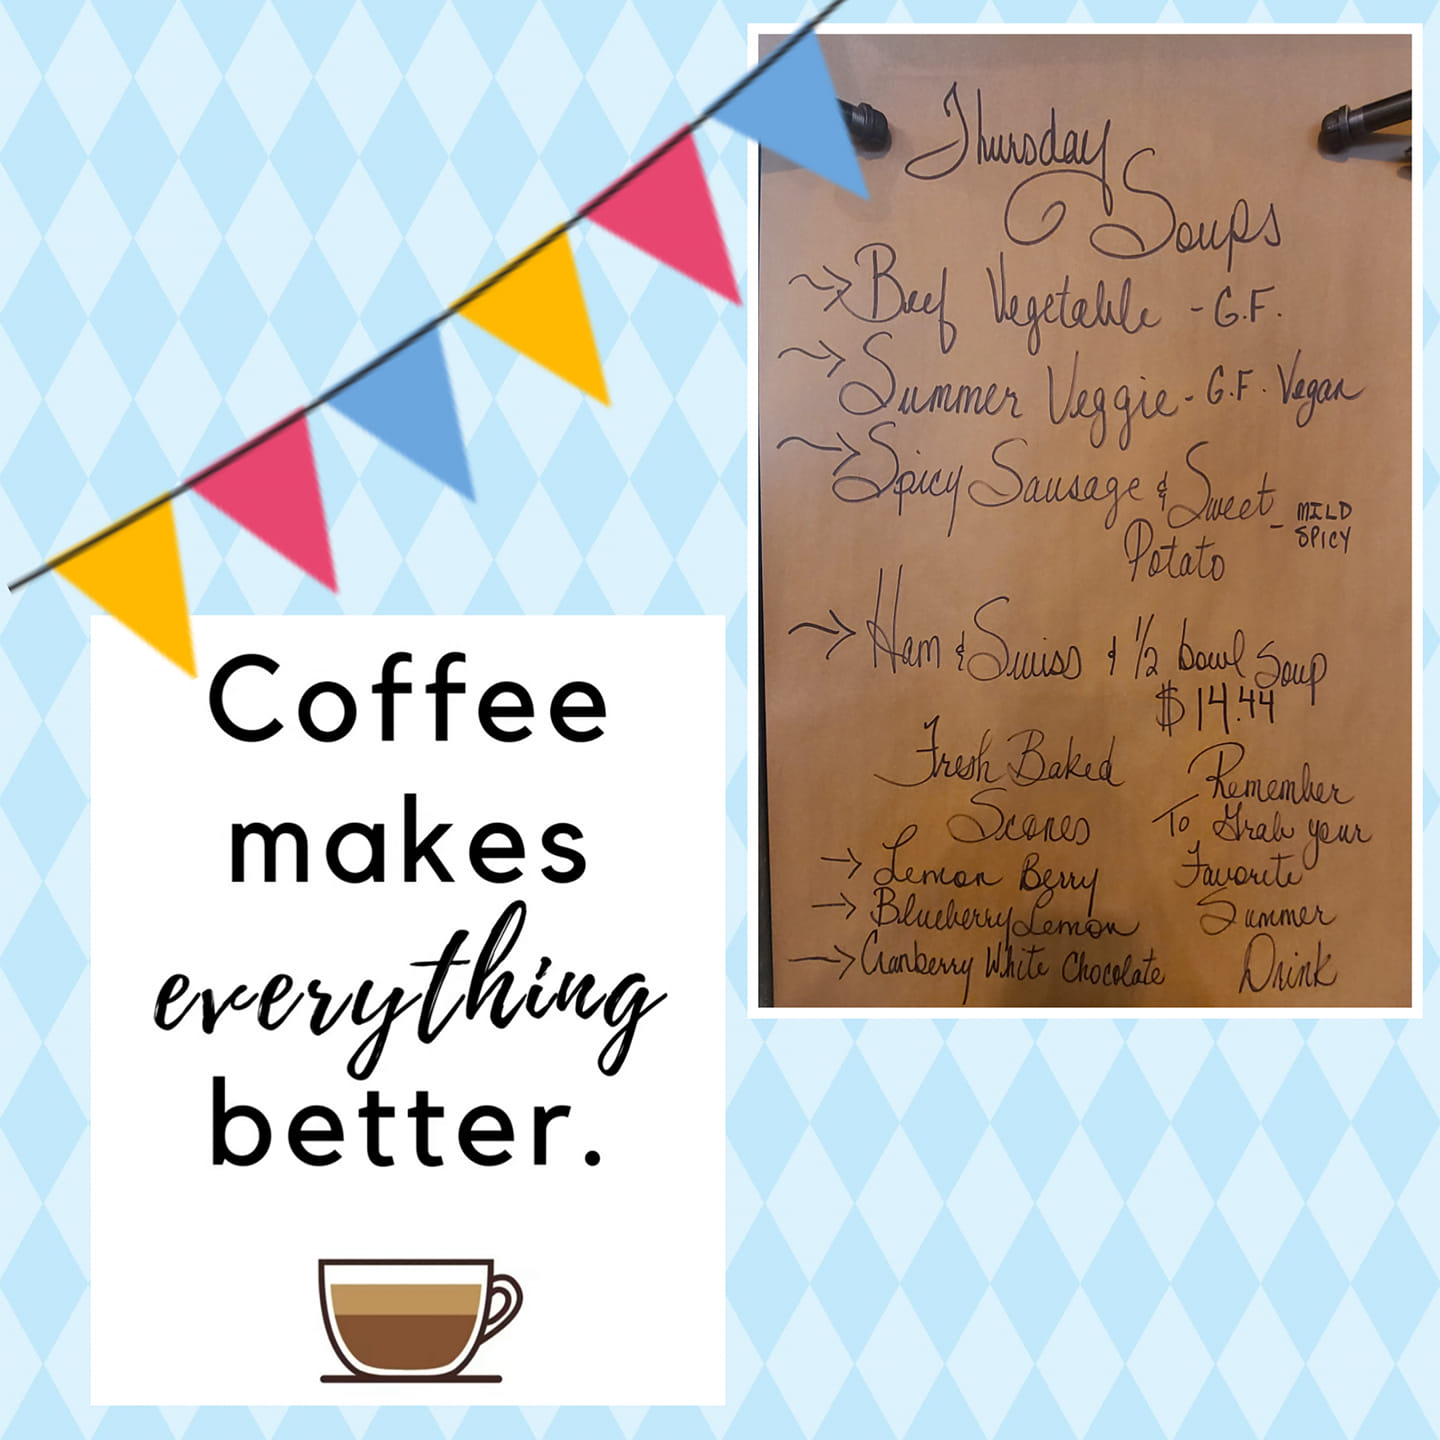 Coffee
makes
everything
better.
Thursday
Soups
Beef Vegetable - G.F.
Summer Veggie - G.F. Vegan
Spicy Sausage & Sweet
Potato
- MILD
SPICY
Ham & Swiss & 1/2 bowl Soup
$14.44
Fresh Baked
Scones
Lemon Berry
Blueberry Lemon
Cranberry White Chocolate
Remember
To Grab your
Favorite
Summer
Drink